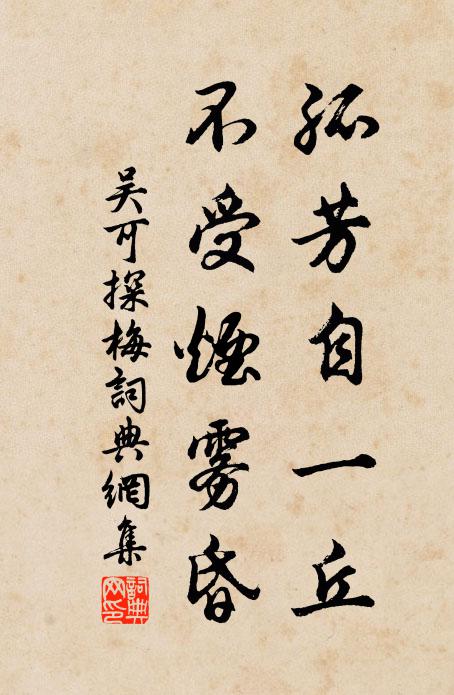 孤芳自一丘
不受煙雾昏
吴可探梅詞典網集
詞典網印